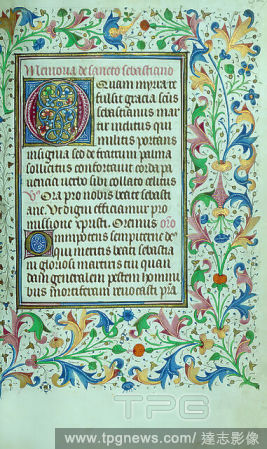 Memoria de sancto sebastiano
O Quam myra re
fulsit gracia scus
sebastianus mar
tir inclitus qui
militis portans
insignia sed de fratrum palma
sollicitus confortauit corda pa
uencia verbo sibi collato celitus
V Ora pro nobis beate sebasti
ane. Ut digni efficiamur pro
missione xpristi. Oremus oro
Omnipotens sempiterne de
qui meritis beati sebastia
ni gloriosi martiris tui quan
dam generalem pestem homini
bus mortiferam reuocasti pra
TPG
www.tpgnews.com / 達志影像